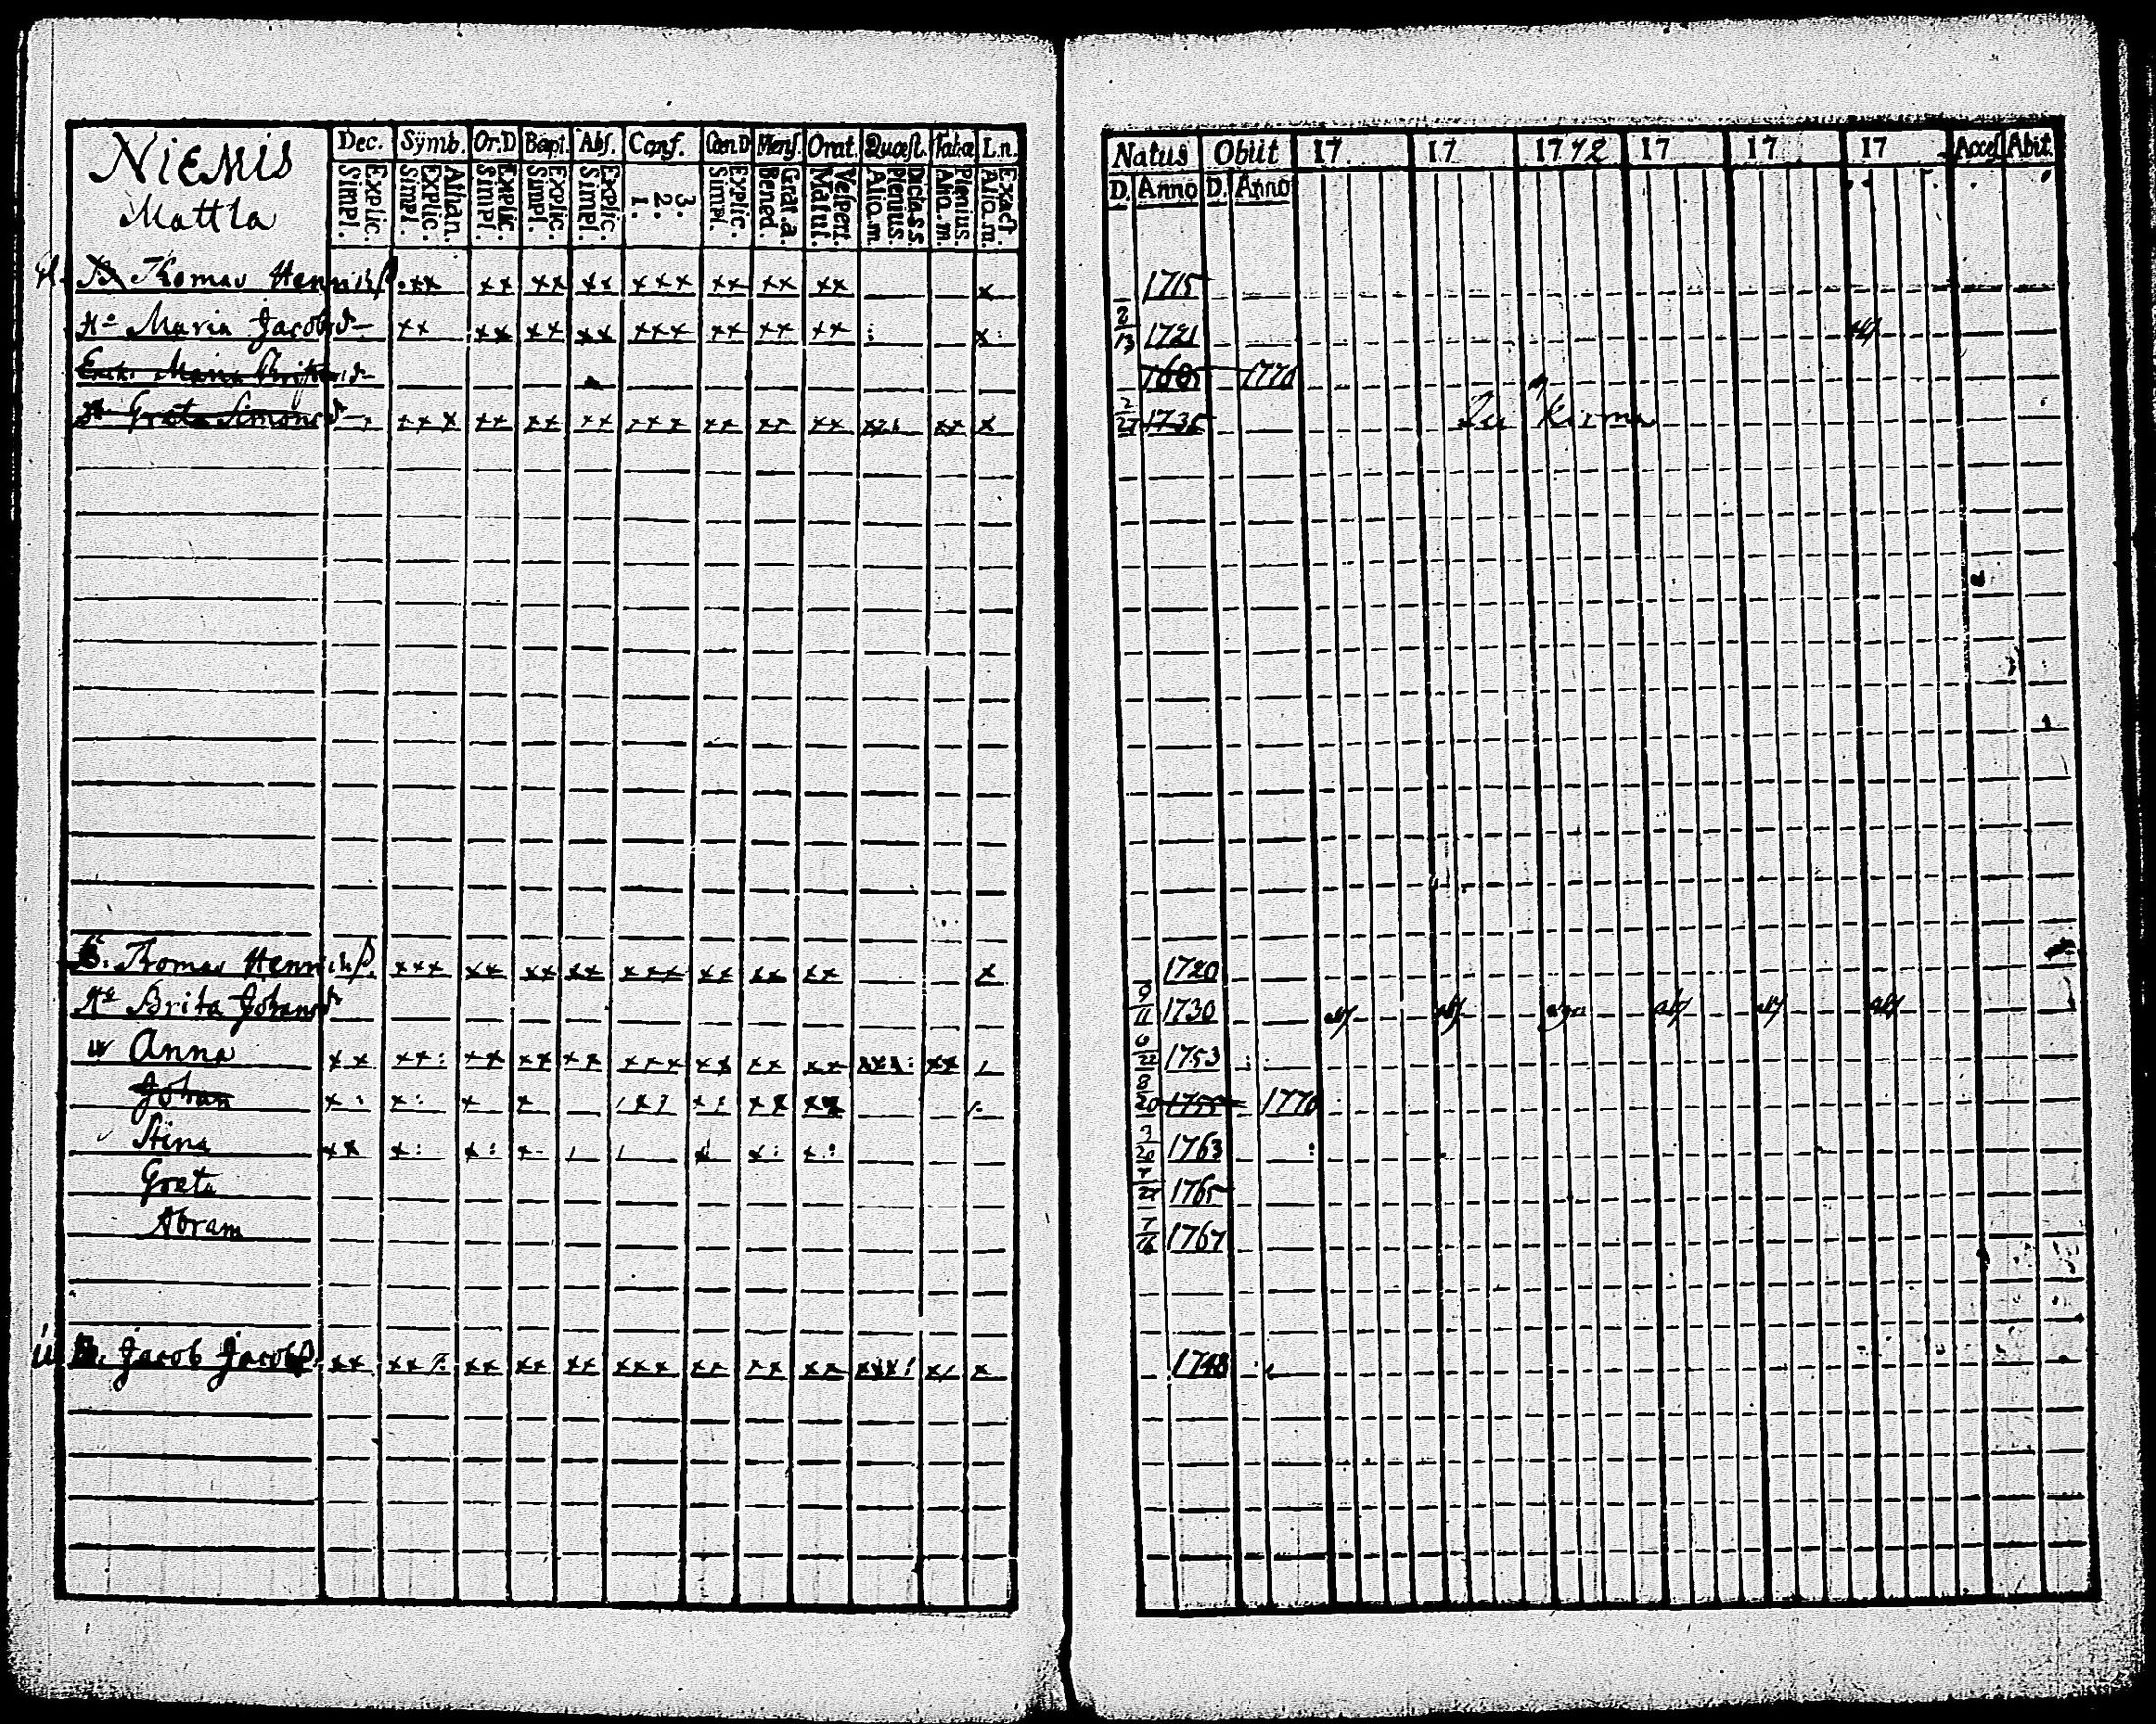 NIEMIS Dec. Symb. Or.D Bapt. Abs. Conf. Cœn.D Mens. Orat. Quæst. Tab.æ L.n. Natus Obiit 17 17 1772 17 17 17 Acces Abit
Mattla Explic. Simpl. Athan. Explic. Simpl. Explic. Simpl. Explic. Simpl. Explic. Simpl. 3. 2. 1. Explic. Simpl. Grat. a. Bened. Vespert. Matut. Dicta s.s. Plenius. Aliq.m. Plenius. Aliq.m. Exact. Aliq.m. D. Anno D. Anno
Thomas Henrichss. xx xx xx xx xxx xx xx xx x 1715
Ho Maria Jacobsd xx xx xx xx xxx xx xx xx x 2/13 1721
Maria 1770
Greta Simonsd xxx xx xx xx xxx xx xx xx xx x 2/27 1735 Kirma
B. Thomas Henrichss. xxx xx xx xx xxx xx xx xx x 1720
Ho Brita Johansd 9/11 1730
Anna xx xx: xx xx xx xxx xx xx xx xxx: xx 6/22 1753
Johan x: x: x x xx xx 8/20 1755 1770
Stina xx x: x: x x: x: 3/20 1763
Greta 1765
Abram 7/16 1767
B. Jacob Jacobss. xx xx xx xx xx xxx xx xx xx xxx: x 1748